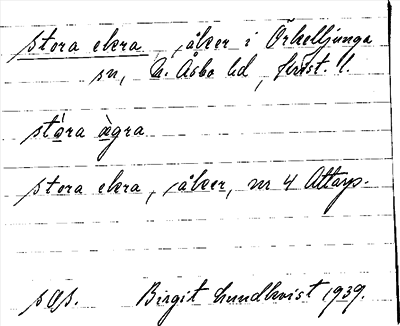 stora ekra, åker i Örkelljunga
sn, N. Åsbo hd, fixst. 1.
stára àgra
stora ekra, åker, nr 4 Attarp.
s øs. Birgit Lundkvist 1939.